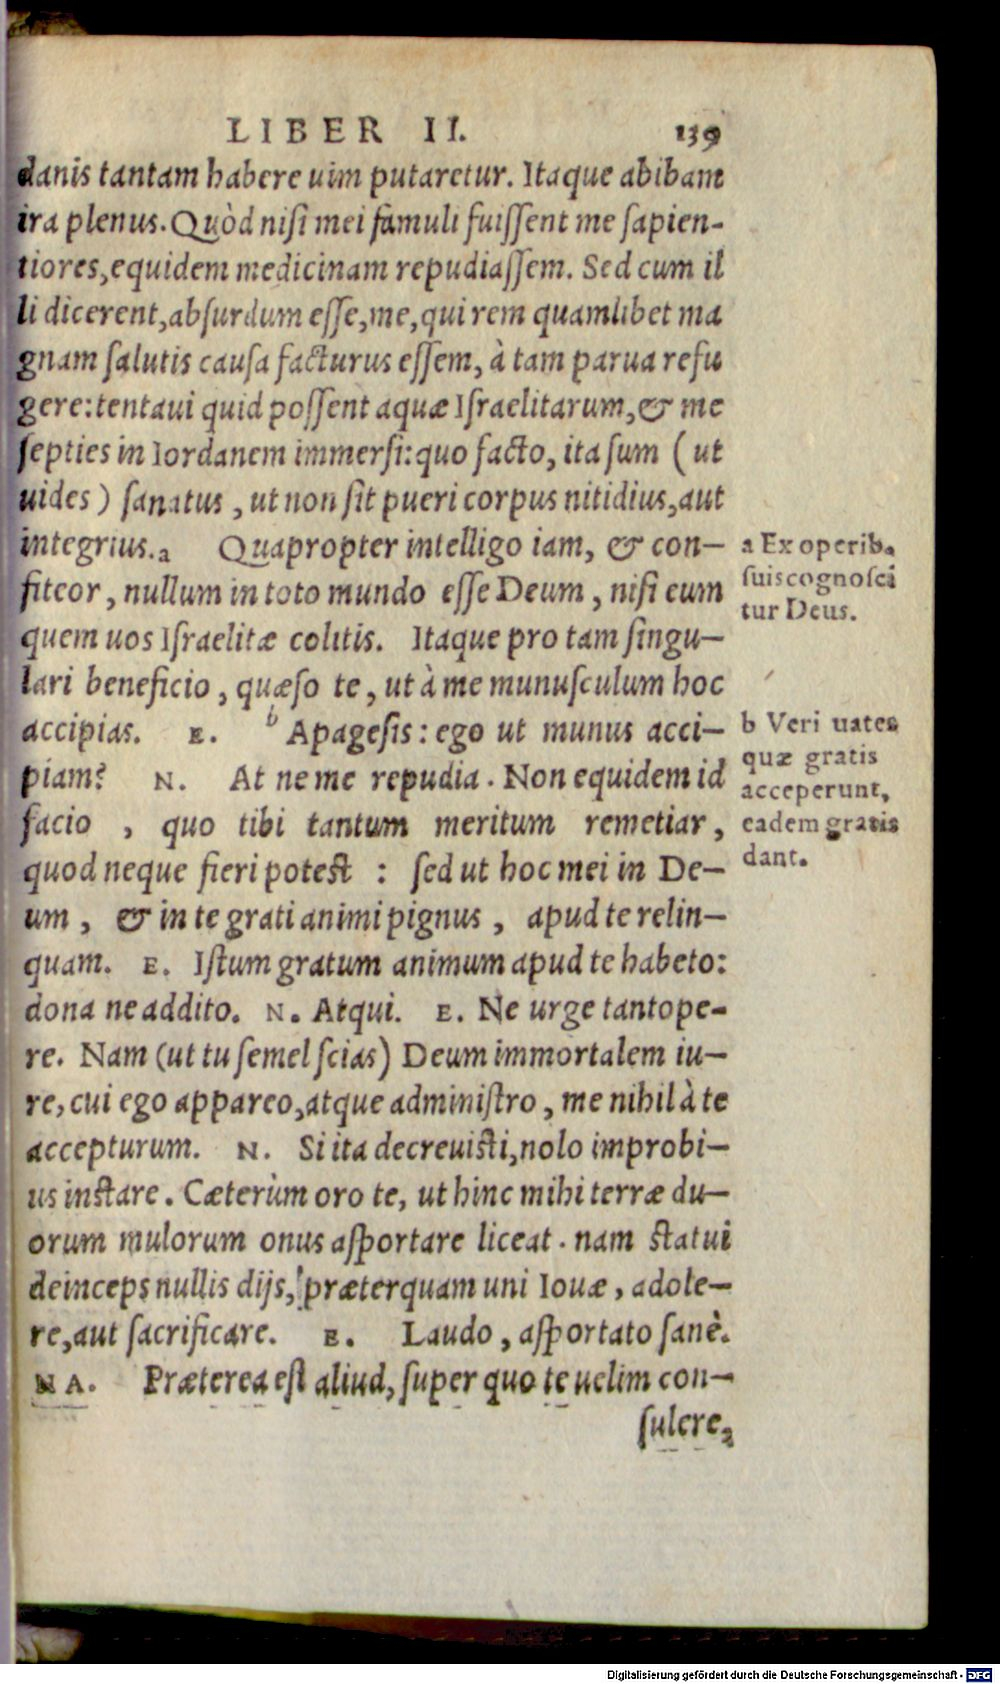 LIBER II. 139
danis tantam habere uim putaretur. Itaque abibam
ira plenus. Quòd nisi mei famuli fuissent me sapien-
tiores, equidem medicinam repudiassem. Sed cum il
li dicerent, absurdum esse, me, qui rem quamlibet ma
gnam salutis causa facturus essem, à tam parua refu
gere: tentaui quid possent aquæ Israelitarum, & me
septies in Iordanem immersi: quo facto, ita sum ( ut
uides ) sanatus, ut non sit pueri corpus nitidius, aut
integrius. a Quapropter intelligo iam, & con-
fiteor, nullum in toto mundo esse Deum, nisi eum
quem uos Israelitæ colitis. Itaque pro tam singu-
lari beneficio, quæso te, ut à me munusculum hoc
accipias. E. b Apagesis: ego ut munus acci-
piam? N. At ne me repudia. Non equidem id
facio, quo tibi tantum meritum remetiar,
quod neque fieri potest : sed ut hoc mei in De-
um, & in te grati animi pignus, apud te relin-
quam. E. Istum gratum animum apud te habeto:
dona ne addito. N. Atqui. E. Ne urge tantope-
re. Nam (ut tu semel scias) Deum immortalem iu-
re, cui ego appareo, atque administro, me nihil à te
accepturum. N. Si ita decreuisti, nolo improbi-
us instare. Cæterùm oro te, ut hinc mihi terræ du-
orum mulorum onus asportare liceat. nam statui
deinceps nullis dijs, præterquam uni Iouæ, adole-
re, aut sacrificare. E. Laudo, asportato sanè.
NA. Præterea est aliud, super quo te uelim con-
sulere,
a Ex operib.
suis cognosci
tur Deus.
b Veri uates
quæ gratis
acceperunt,
eadem gratis
dant.
Digitalisierung gefördert durch die Deutsche Forschungsgemeinschaft - DFG